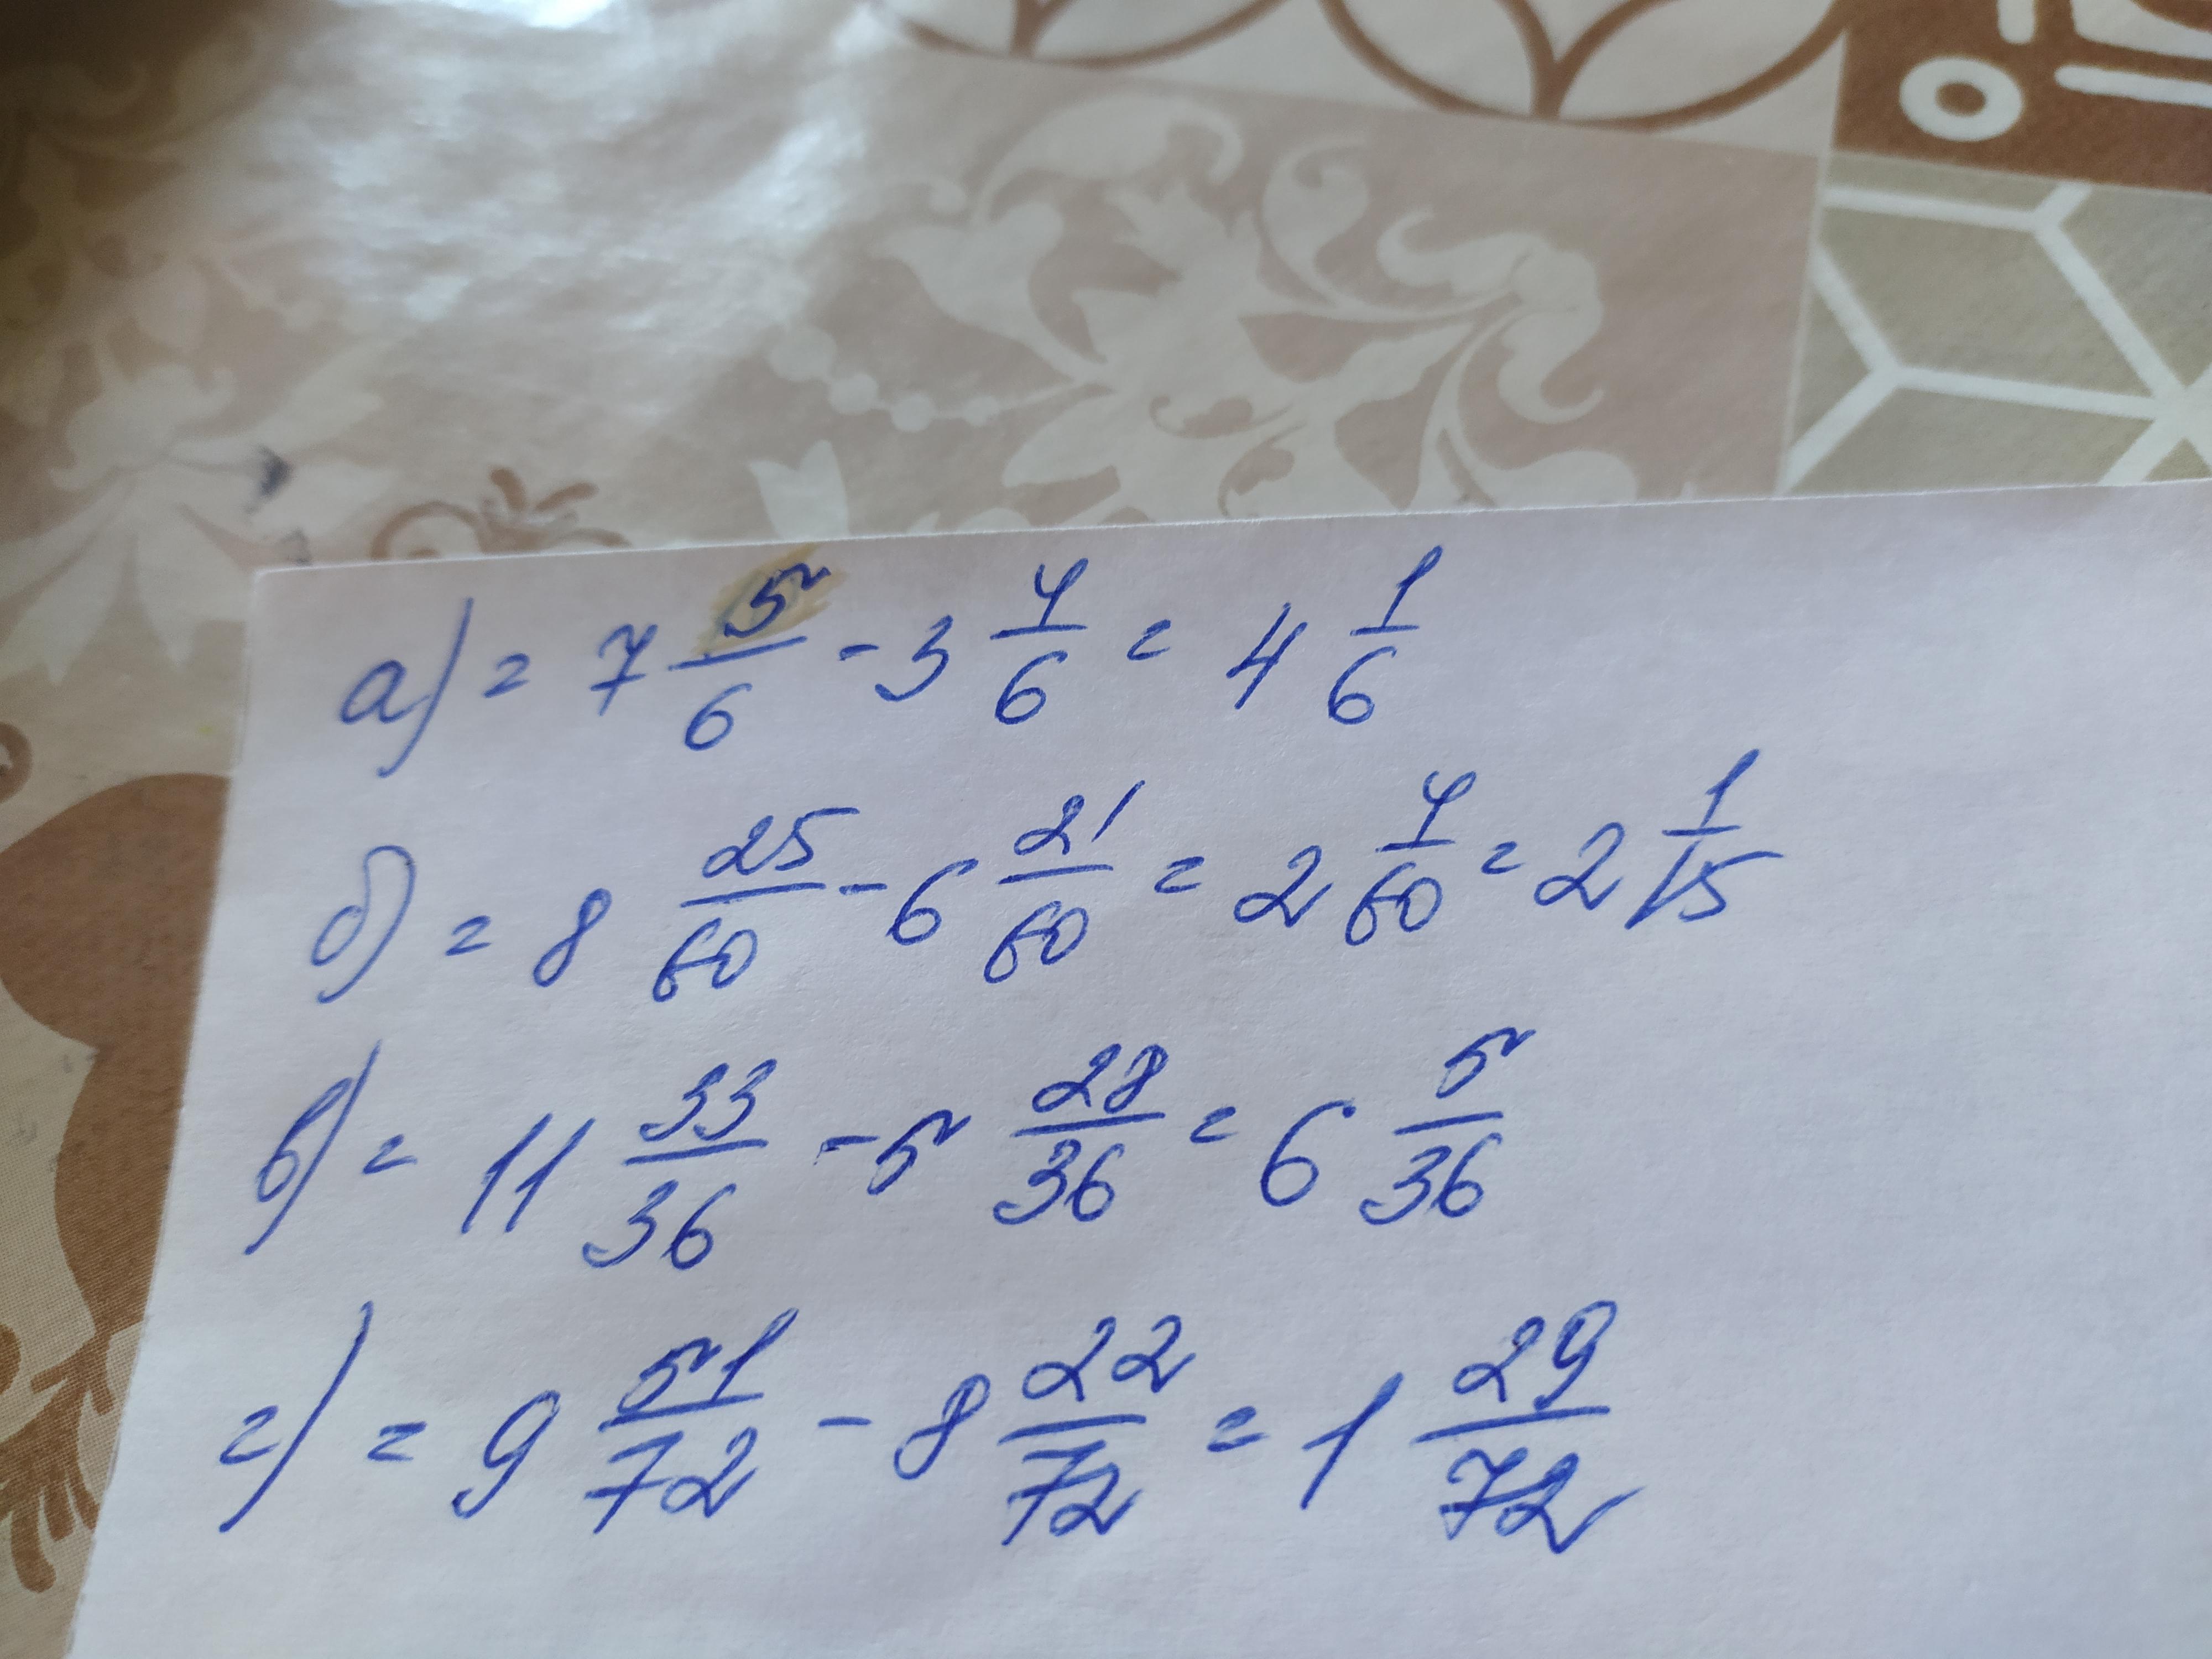 а) = 7 5/6 - 3 4/6 = 4 1/6
б) = 8 25/60 - 6 21/60 = 2 4/60 = 2 1/15
в) = 11 33/36 - 5 28/36 = 6 5/36
г) = 9 51/72 - 8 22/72 = 1 29/72